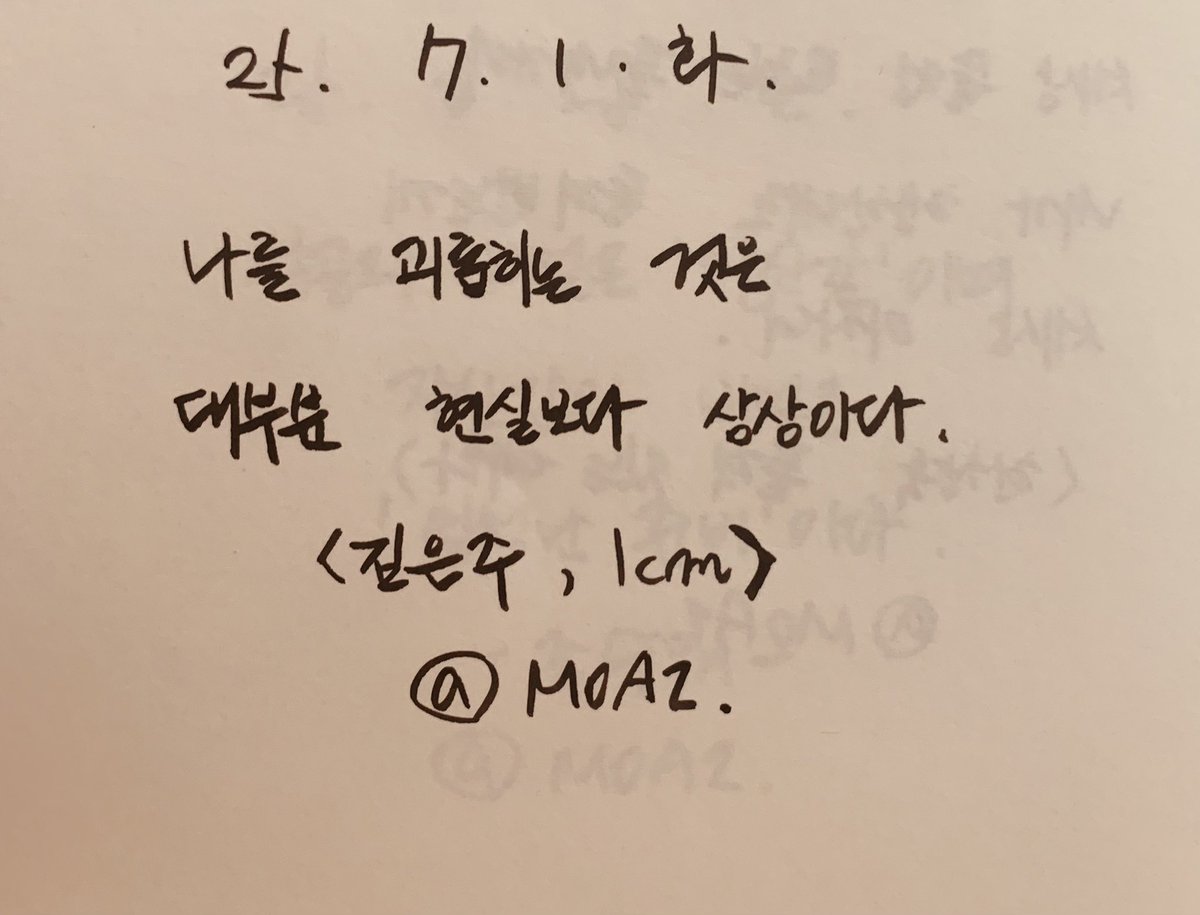 25. 7. 1. 화.
나를 괴롭히는 것은
대부분 현실보다 상상이다.
<김은주, 1cm>
@ MOAZ.